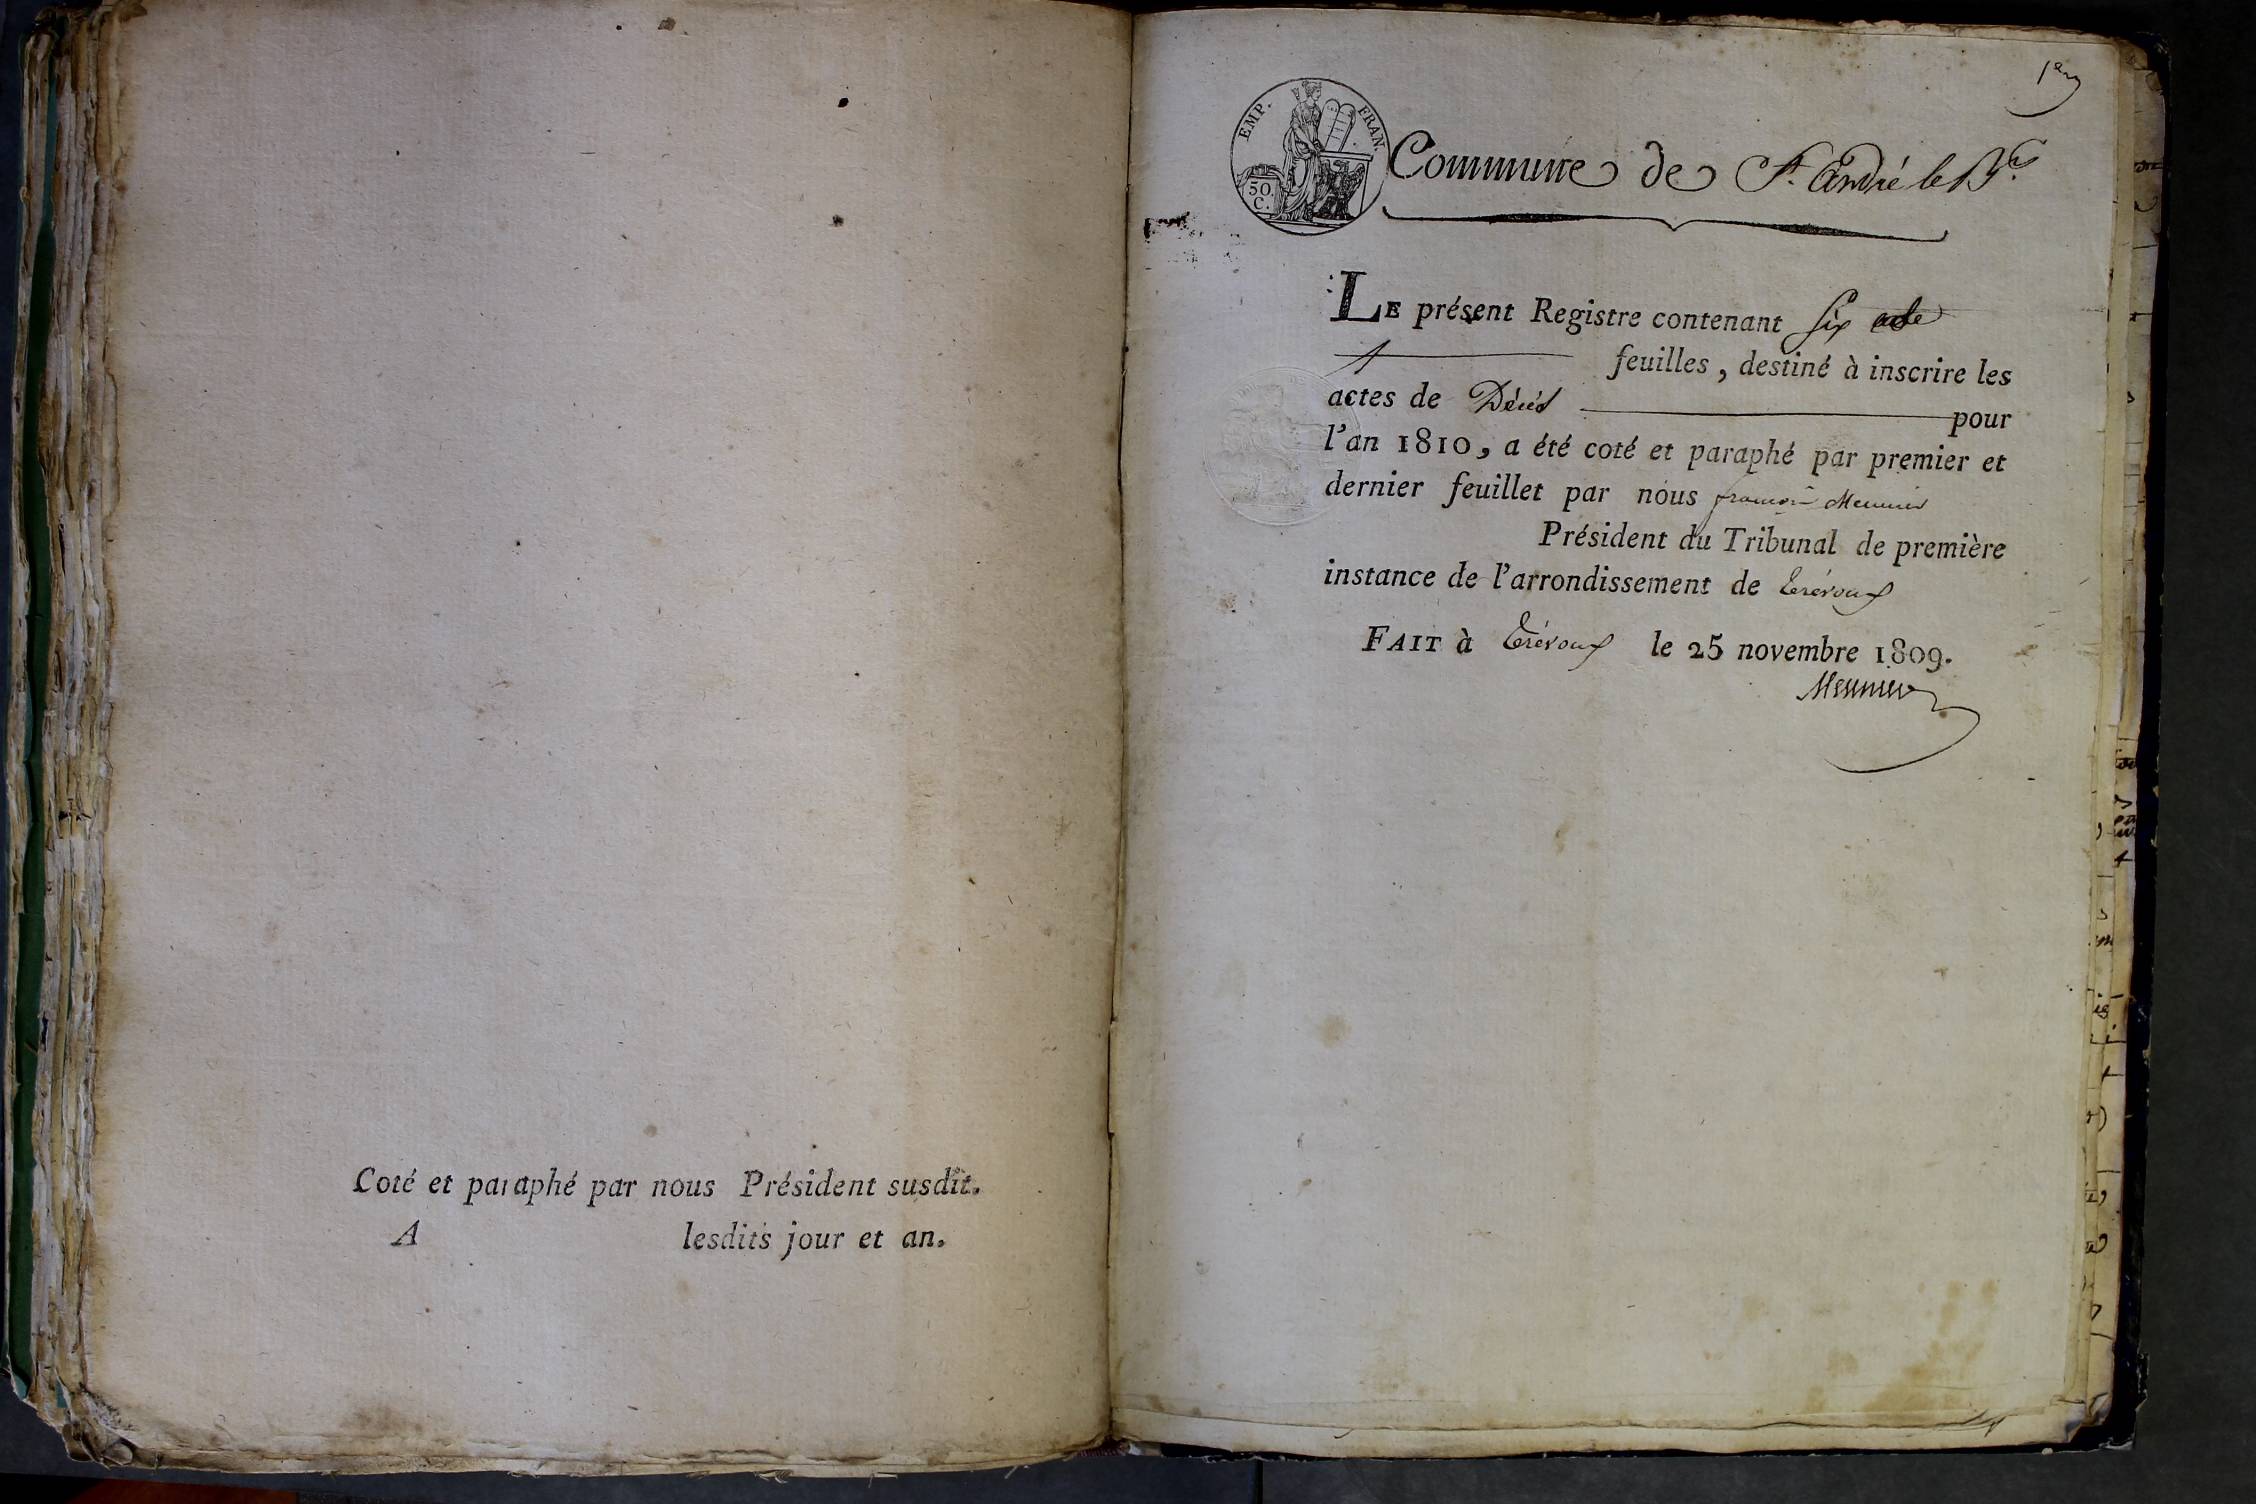 Coté et paraphé par nous Président susdit.
A lesdits jour et an.
1er
EMP. FRAN.
50 C.
Commune de St. André le Bx.
LE présent Registre contenant six
feuilles, destiné à inscrire les
actes de Décès pour
l'an 1810, a été coté et paraphé par premier et
dernier feuillet par nous françois Meunier
Président du Tribunal de première
instance de l'arrondissement de trévoux
FAIT à trévoux le 25 novembre 1809.
Meunier